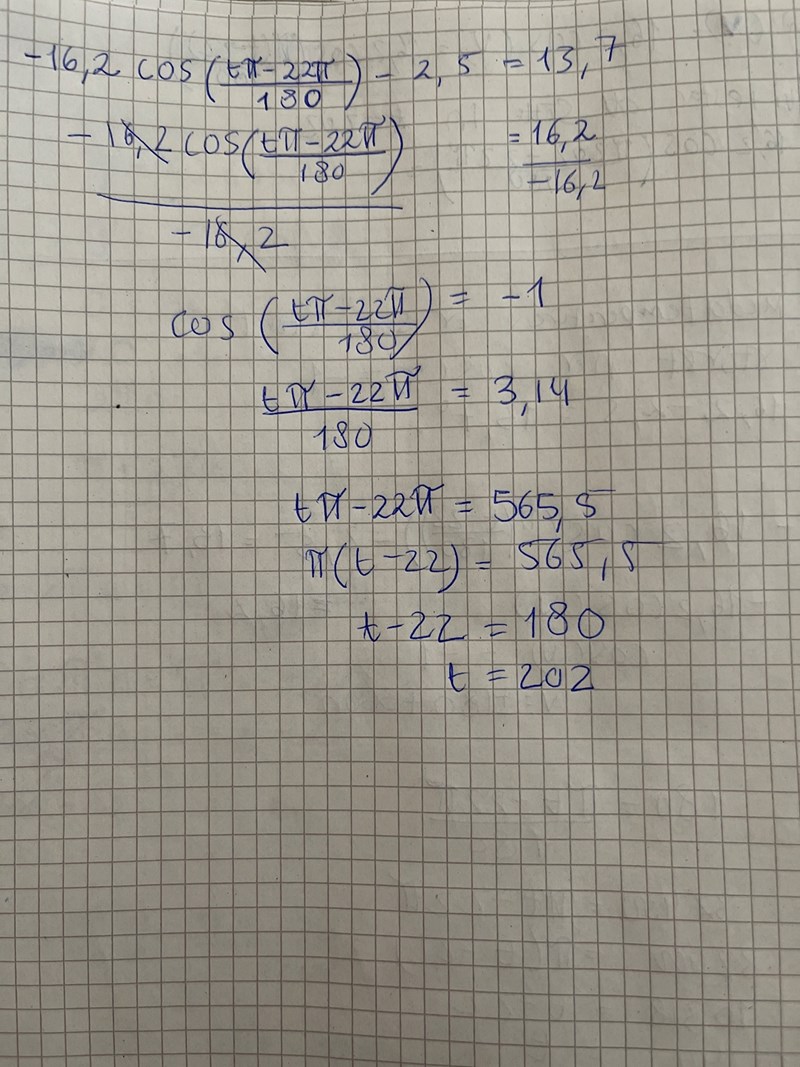 -16,2 cos(tπ-22π/180) - 2,5 = 13,7
-16,2 cos(tπ-22π/180)/-16,2 = 16,2/-16,2
cos(tπ-22π/180) = -1
tπ-22π/180 = 3,14
tπ-22π = 565,5
π(t-22) = 565,5
t-22 = 180
t = 202